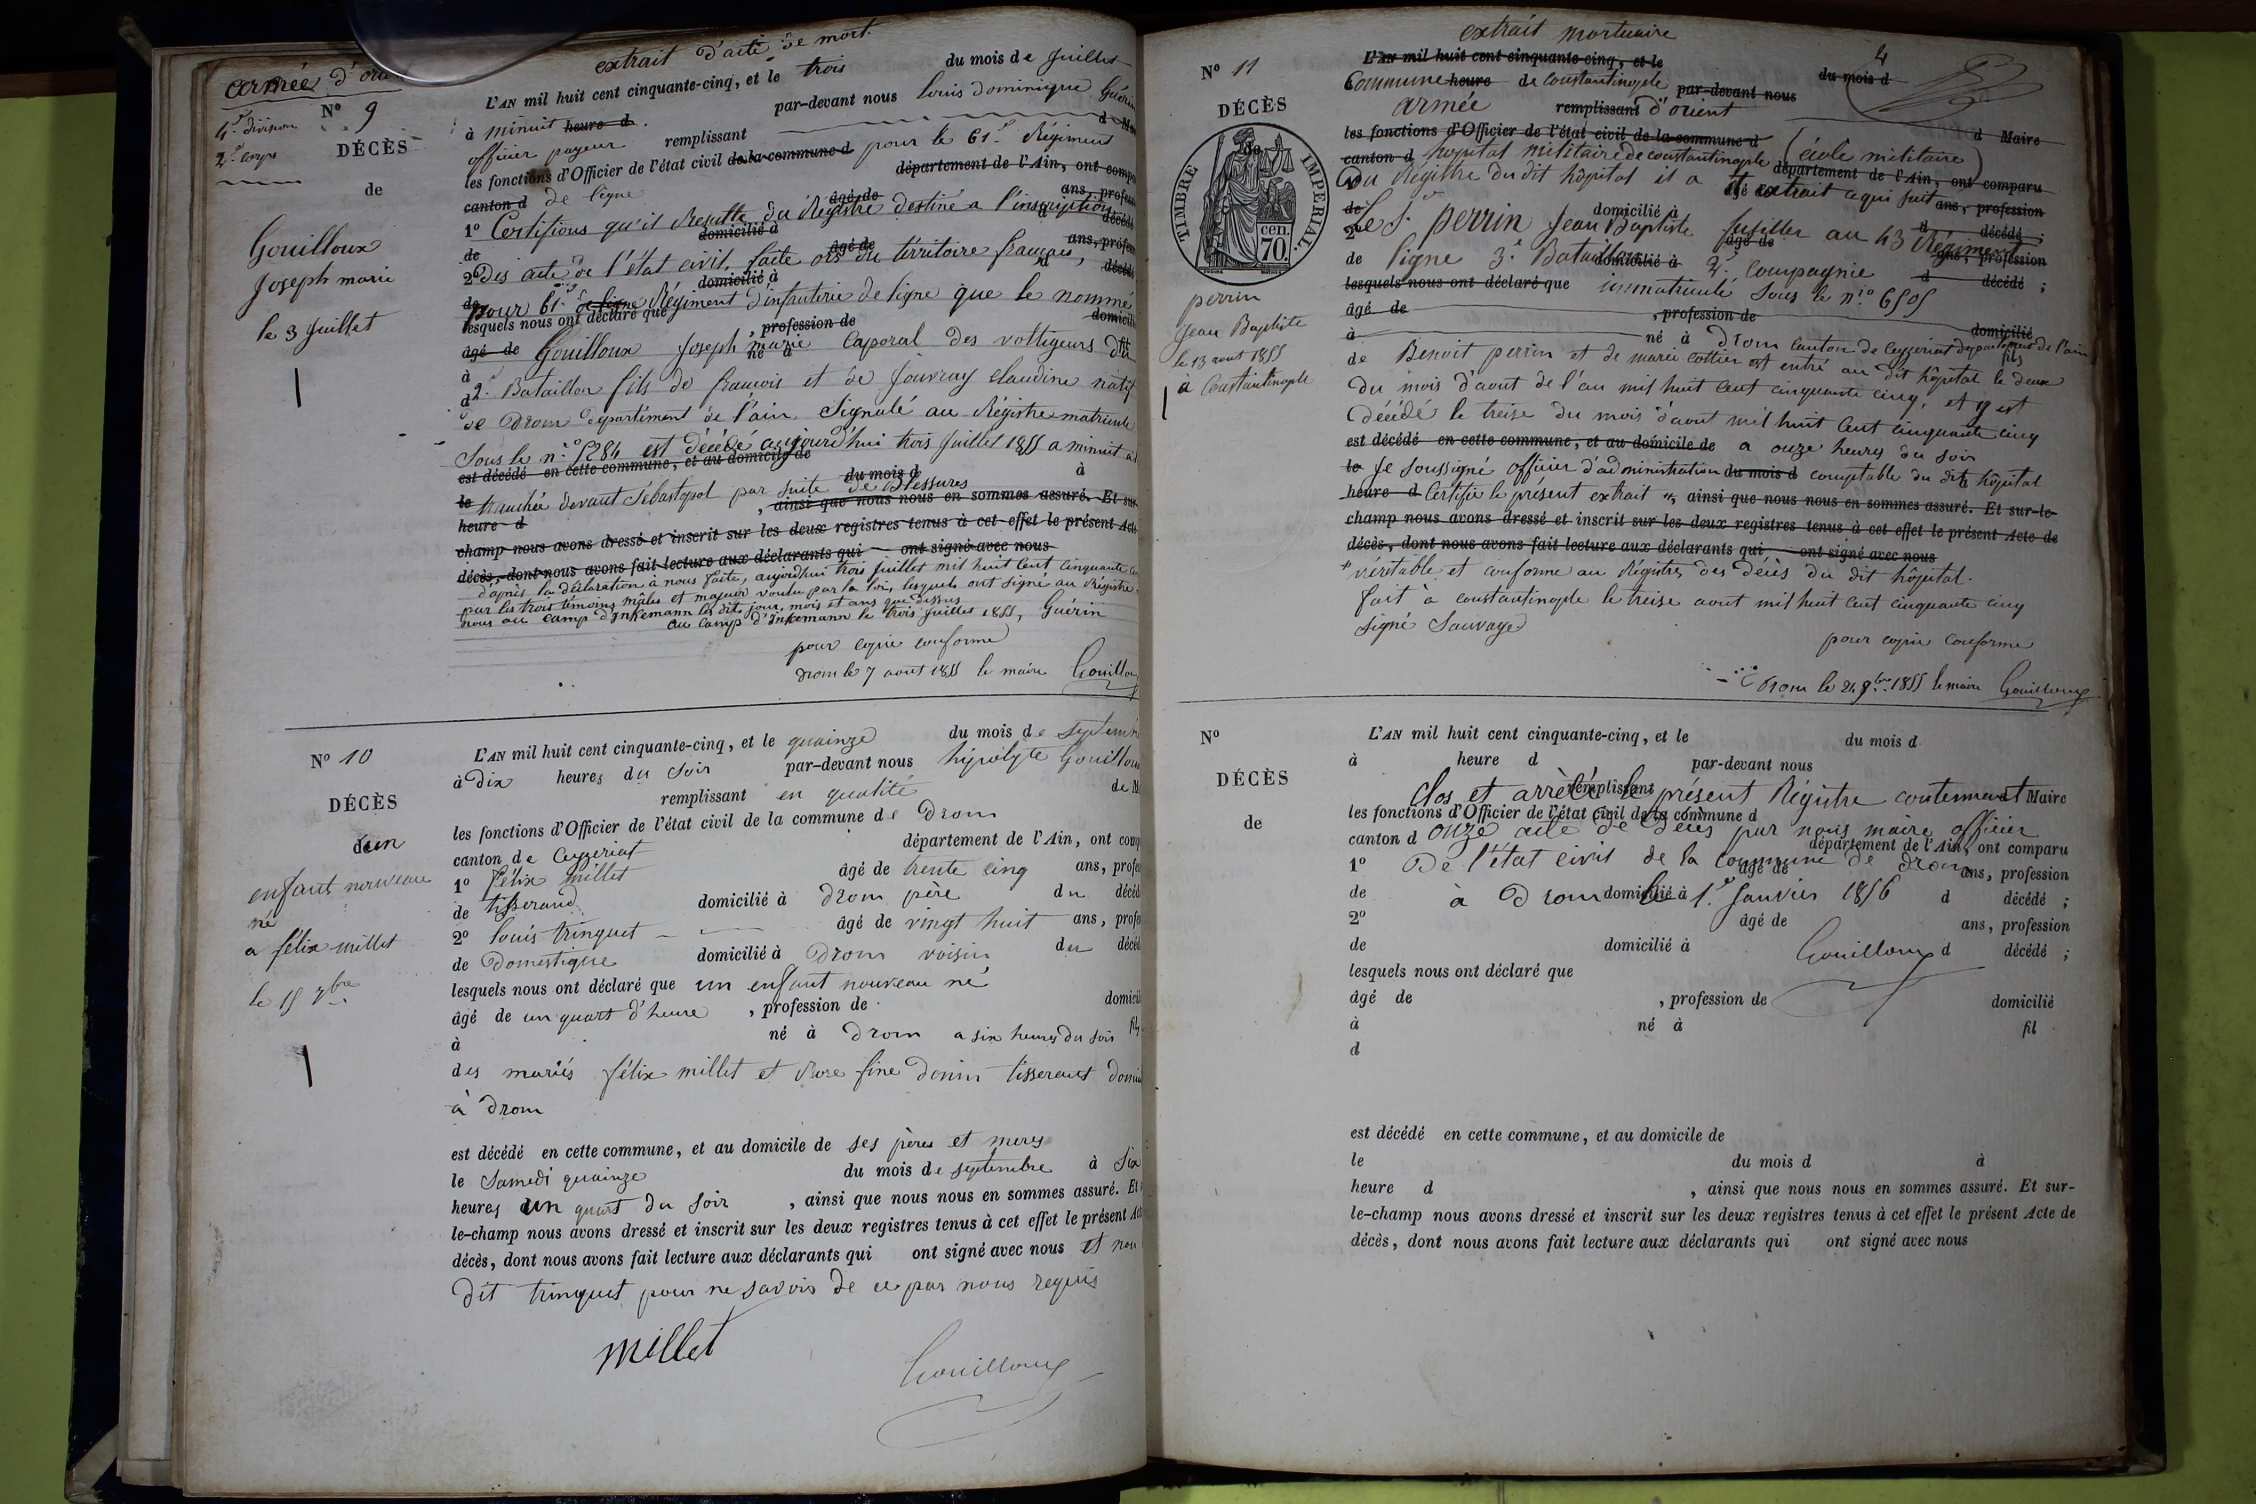 armée d'ori
4.e division
2.e corps
No 9
DÉCÈS
de
Gouilloux
Joseph marie
le 3 Juillet
extrait d'acte de mort.
L'AN mil huit cent cinquante-cinq, et le trois du mois de Juillet
à minuit heure d par-devant nous Louis dominique Guérin
officier payeur remplissant d M
les fonctions d'Officier de l'état civil de la commune d pour le 61.e Régiment
canton d de ligne département de l'Ain, ont compa
1o Certifions qu'il Resulte du Registre destiné a l'inscription âgé de ans, profess
de domicilié à décédé
2o Des acte de l'état civil, faite ors du térritoire français, âgé de ans, profess
de domicilié à décédé
pour 61.e de ligne Régiment d'infanterie de ligne que le nommé
lesquels nous ont déclaré que
âgé de Gouilloux Joseph marie Caporal des voltigeurs du , profession de domicili
à né à
d 2.e Bataillon fils de francois et de Jouvray claudine natif
de Drom département de l'ain Signalé au Régistre matricule
Sous le n.o 5284 est décédé aujourd'hui trois Juillet 1855 a minuit a l
est décédé en cette commune, et au domicile de
le tranchée devant Sébastopol par suite de Blessures du mois d à
heure d , ainsi que nous nous en sommes assuré. Et sur-
champ nous avons dressé et inscrit sur les deux registres tenus à cet effet le présent Acte
décès, dont nous avons fait lecture aux déclarants qui ont signé avec nous
d'après la déclaration à nous faite, aujourdhui trois Juillet mil huit Cent Cinquante
par les trois témoins mâles et majeur voulu par la loi, lesquels ont signé au Régistre
nous au camp d'Inkemann les dits jour, mois et ans que dessus
au Camp d'Inkemann le trois Juillet 1855, Guérin
pour copie conforme
Drom le 7 aout 1855 le maire Gouillou
No 10
DÉCÈS
de un
enfant nouveau
né
a félix millet
le 15 7bre
L'AN mil huit cent cinquante-cinq, et le quainze du mois de Septemb
à dix heures du soir par-devant nous hipolyte Gouillou
remplissant en qualité de M
les fonctions d'Officier de l'état civil de la commune de Drom
canton de Ceyzeriat département de l'Ain, ont comp
1o félix millet âgé de trente cinq ans, profes
de tisserand domicilié à Drom père du décéd
2o louis trinquet âgé de vingt huit ans, profes
de Domestique domicilié à Drom voisin du décéd
lesquels nous ont déclaré que un enfant nouveau né
âgé de un quart d'heure , profession de domicili
à né à Drom a six heures du soir fils
des mariés félix millet et fine tisserant domi
à Drom
est décédé en cette commune, et au domicile de ses pères et meres
le Samedi quainze du mois de septembre à Six
heures un quart du soir , ainsi que nous nous en sommes assuré. Et
le-champ nous avons dressé et inscrit sur les deux registres tenus à cet effet le présent Act
décès, dont nous avons fait lecture aux déclarants qui ont signé avec nous et non
Dit trinquet pour ne savoir de ce par nous requis
Millet
Gouilloux
No 11
DÉCÈS
de
TIMBRE IMPERIAL.
70 cen.
perrin
Jean Baptiste
le 13 aout 1855
à Constantinople
4
extrait mortuaire
L'AN mil huit cent cinquante-cinq, et le du mois d
Commune heure de constantinople par-devant nous
armée remplissant d'orient
les fonctions d'Officier de l'état civil de la commune d d Maire
canton d hopital militaire de constantinople (école militaire) département de l'Ain, ont comparu
1o Du Régistre du dit hôpital il a été extrait ce qui suit âgé de ans, profession
de domicilié à d décédé ;
2o Le S.r perrin Jean Baptiste fusilier au 43 Régiment âgé de ans, profession
de ligne 3.e Bataillon domicilié à 2.e Compagnie d décédé ;
lesquels nous ont déclaré que immatriculé sous le n.ro 6505
âgé de , profession de domicilié
à né à Drom canton de Ceyzeriat departement de l'ain fils
de Benoit perrin et de marie cottier est entré au dit hôpital le deux
du mois d'aout de l'an mil huit Cent cinquante cinq, et y est
Décédé le treize du mois d'aout mil huit Cent cinquante cinq
est décédé en cette commune, et au domicile de a onze heures du soir
le Je soussigné officier d'administration du mois d comptable du dit hôpital
heure d Certifie le présent extrait , ainsi que nous nous en sommes assuré. Et sur-le-
champ nous avons dressé et inscrit sur les deux registres tenus à cet effet le présent Acte de
décès, dont nous avons fait lecture aux déclarants qui ont signé avec nous
véritable et conforme au Régistre des décès du dit hôpital.
fait à constantinople le treize aout mil huit cent cinquante cinq
Signé Sauvage
pour copie conforme
Drom le 24 9bre 1855 le maire Gouilloux
No
DÉCÈS
de
L'AN mil huit cent cinquante-cinq, et le du mois d
à heure d par-devant nous
remplissant
Clos et arrèté le présent Régistre contennent Maire
les fonctions d'Officier de l'état civil de la commune d
canton d onze acte de Décès par nous maire officier
département de l'Ain, ont comparu
1o De l'état civil de la commune de drom âgé de ans, profession
de à Drom domicilié à le 1.er Janvier 1856 d décédé ;
2o âgé de ans, profession
de domicilié à Gouilloux d décédé ;
lesquels nous ont déclaré que
âgé de , profession de domicilié
à né à fil
d
est décédé en cette commune, et au domicile de
le du mois d à
heure d , ainsi que nous nous en sommes assuré. Et sur-
le-champ nous avons dressé et inscrit sur les deux registres tenus à cet effet le présent Acte de
décès, dont nous avons fait lecture aux déclarants qui ont signé avec nous